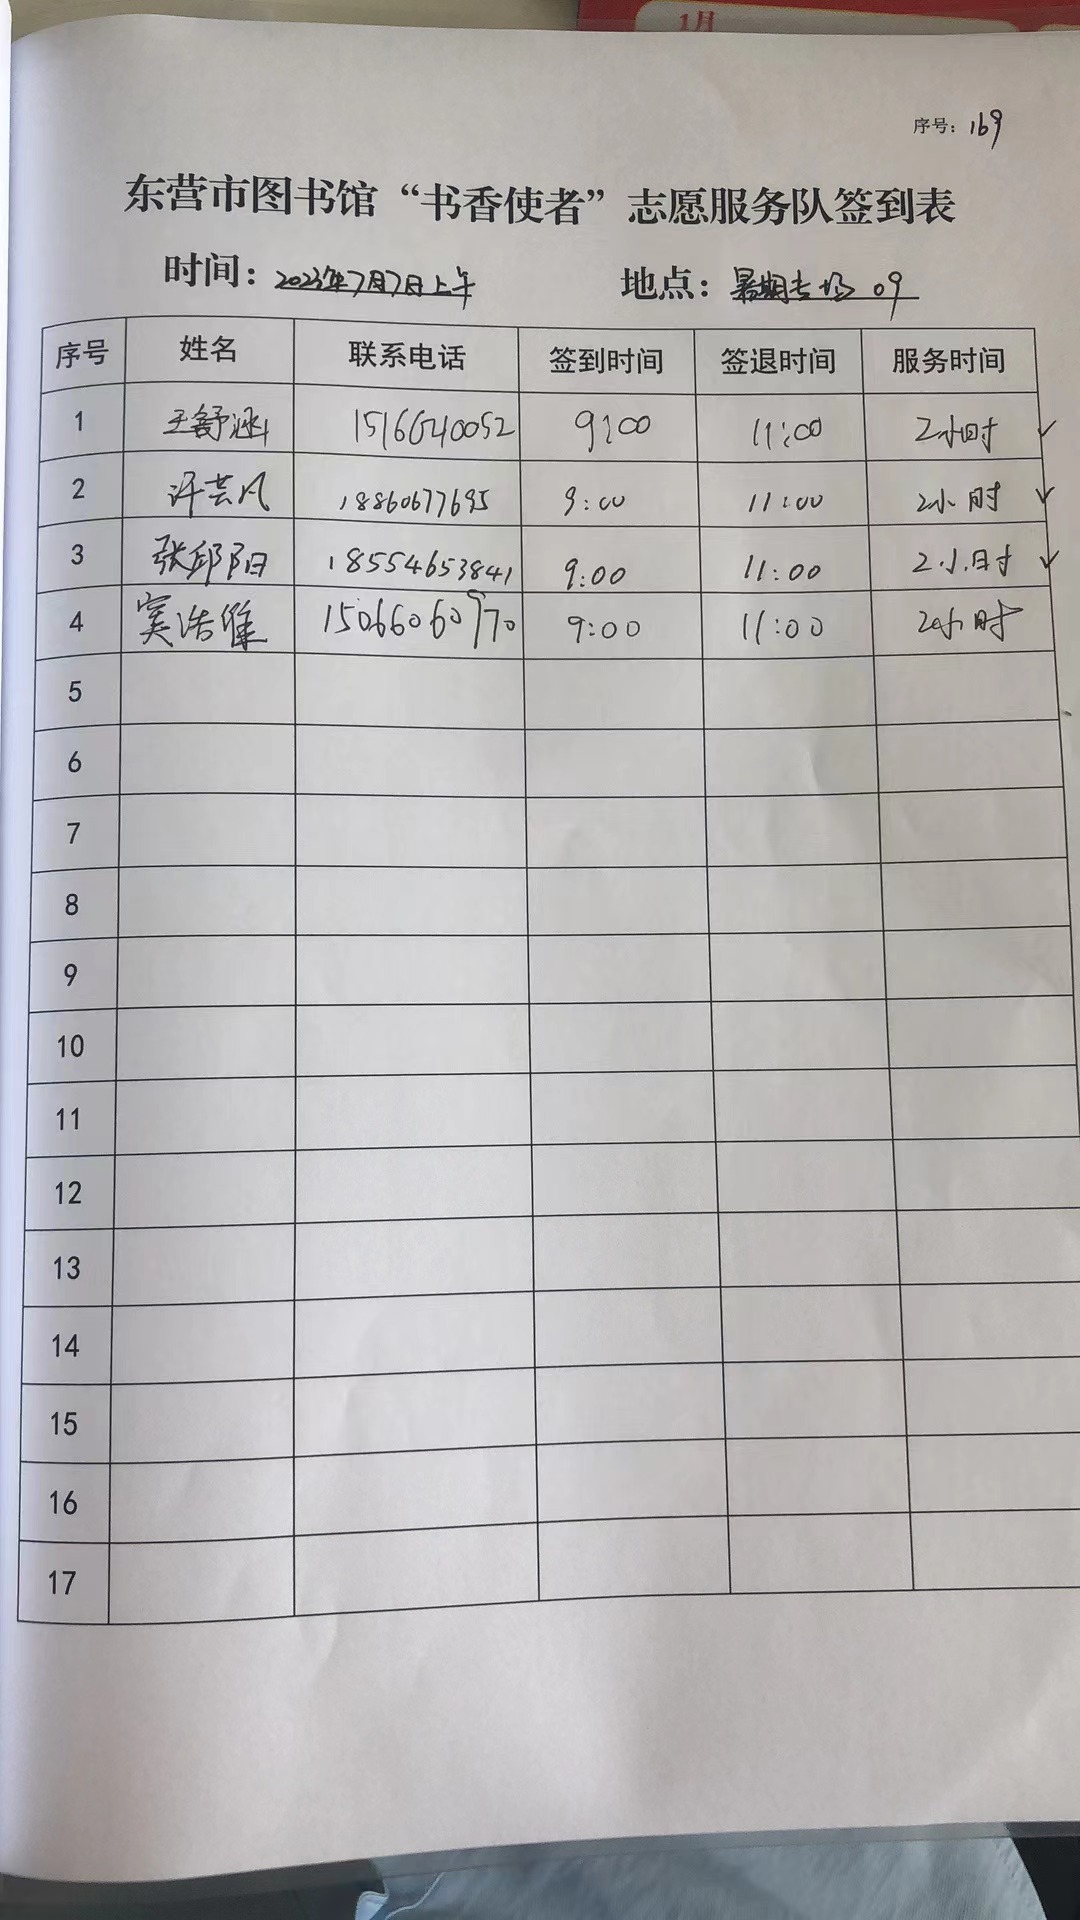 1月
序号：169
东营市图书馆“书香使者”志愿服务队签到表
时间：2023年7月7日上午 地点：暑期专场 09
序号 姓名 联系电话 签到时间 签退时间 服务时间
1 王舒涵 15166040052 9:00 11:00 2小时 ✓
2 许芸凡 18860677695 9:00 11:00 2小时 ✓
3 张邱阳 18554653841 9:00 11:00 2小时 ✓
4 窦浩雅 15066060970 9:00 11:00 2小时
5
6
7
8
9
10
11
12
13
14
15
16
17